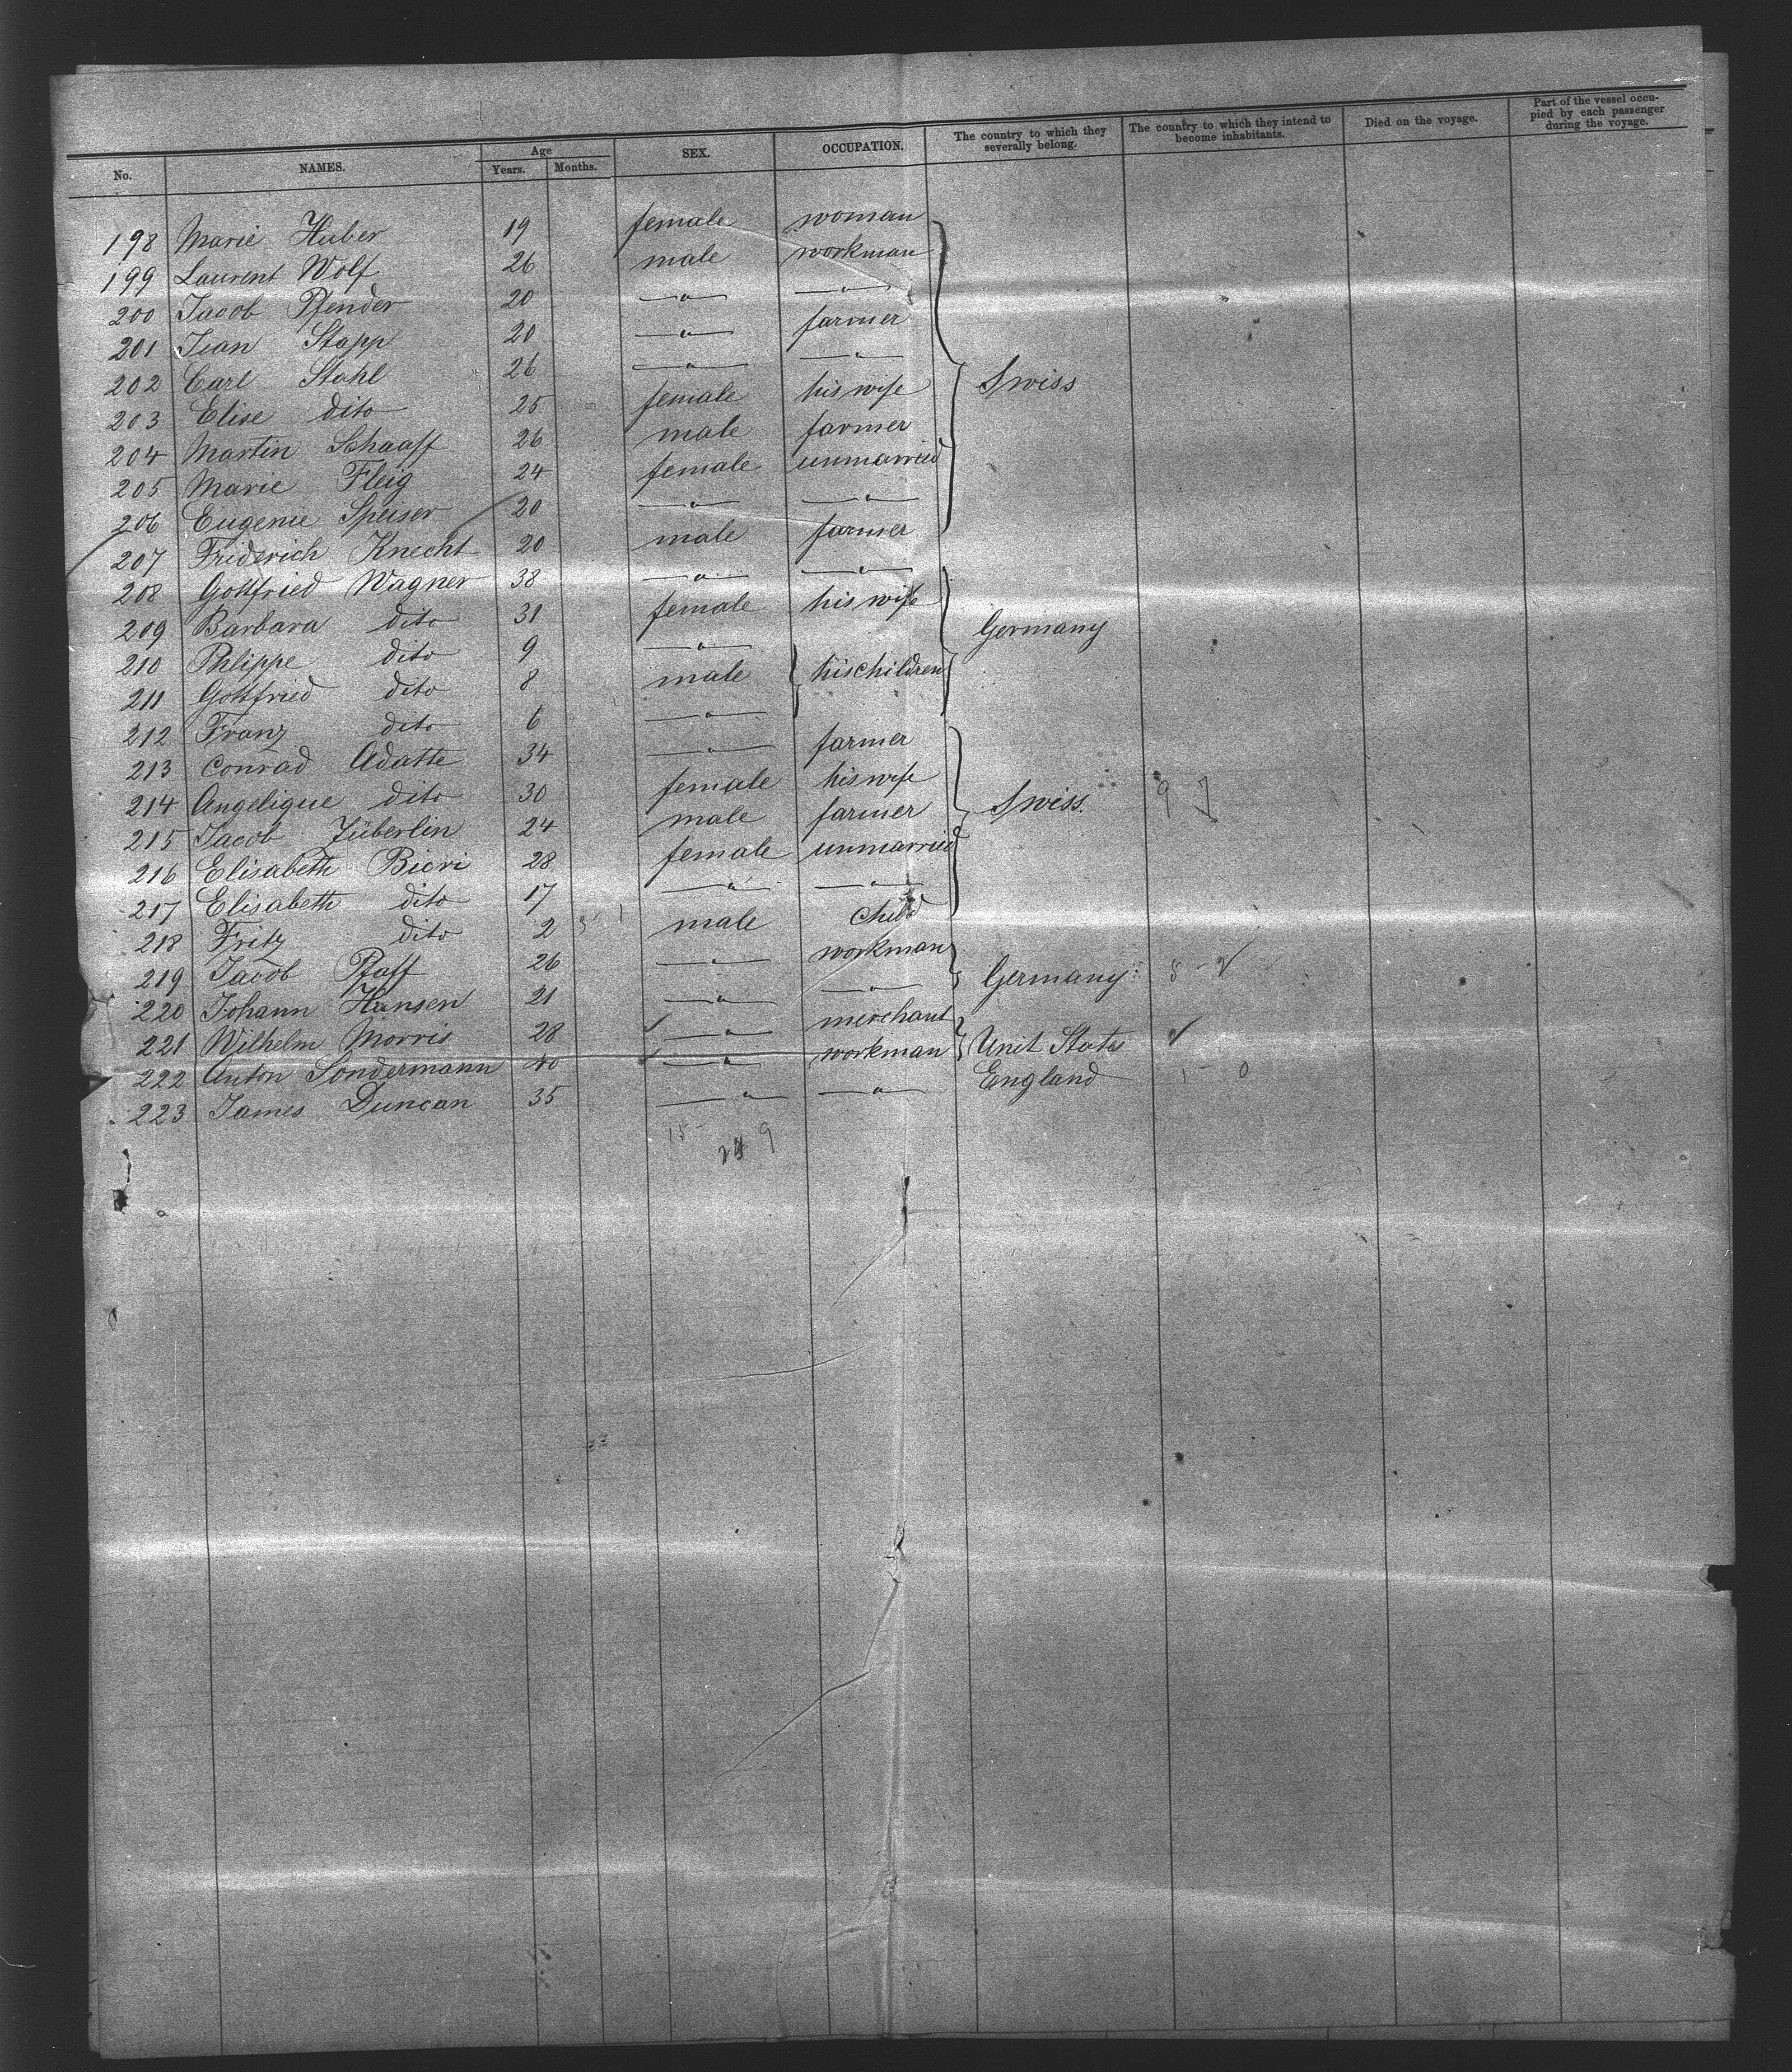 No. NAMES. Age Years. Months. SEX. OCCUPATION. The country to which they severally belong. The country to which they intend to become inhabitants. Died on the voyage. Part of the vessel occupied by each passenger during the voyage.
198 Marie Huber 19 female woman
199 Laurent Wolf 26 male workman
200 Jacob Pfender 20 —"— —"—
201 Jean Stapp 20 —"— farmer
202 Carl Stahl 26 —"— —"— Swiss
203 Elise dito 25 female his wife
204 Martin Schaaff 26 male farmer
205 Marie Fleig 24 female unmarried
206 Eugenie Speiser 20 —"— —"—
207 Friderich Knecht 20 male farmer
208 Gottfried Wagner 38 —"— —"—
209 Barbara dito 31 female his wife Germany
210 Phlippe dito 9 —"—
211 Gottfried dito 8 male his children
212 Franz dito 6 —"—
213 Conrad Adatte 34 —"— farmer
214 Angelique dito 30 female his wife
215 Jacob Züberlin 24 male farmer Swiss. 9 7
216 Elisabeth Bieri 28 female unmarried
217 Elisabeth dito 17 —"— —"—
218 Fritz dito 2 male child
219 Jacob Pfaff 26 —"— workman
220 Johann Hansen 21 —"— —"— Germany
221 Wilhelm Morris 28 —"— merchant
222 Anton Sondermann 40 —"— workman Unit States
223 James Duncan 35 —"— —"— England 1 - 0
15 -
9